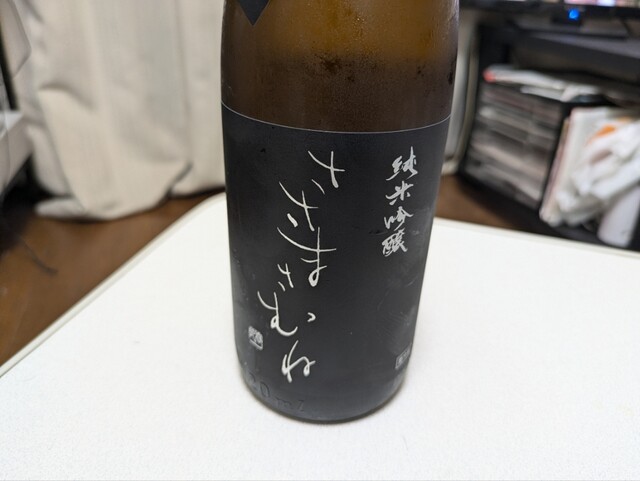 純米吟醸
ささまさむね